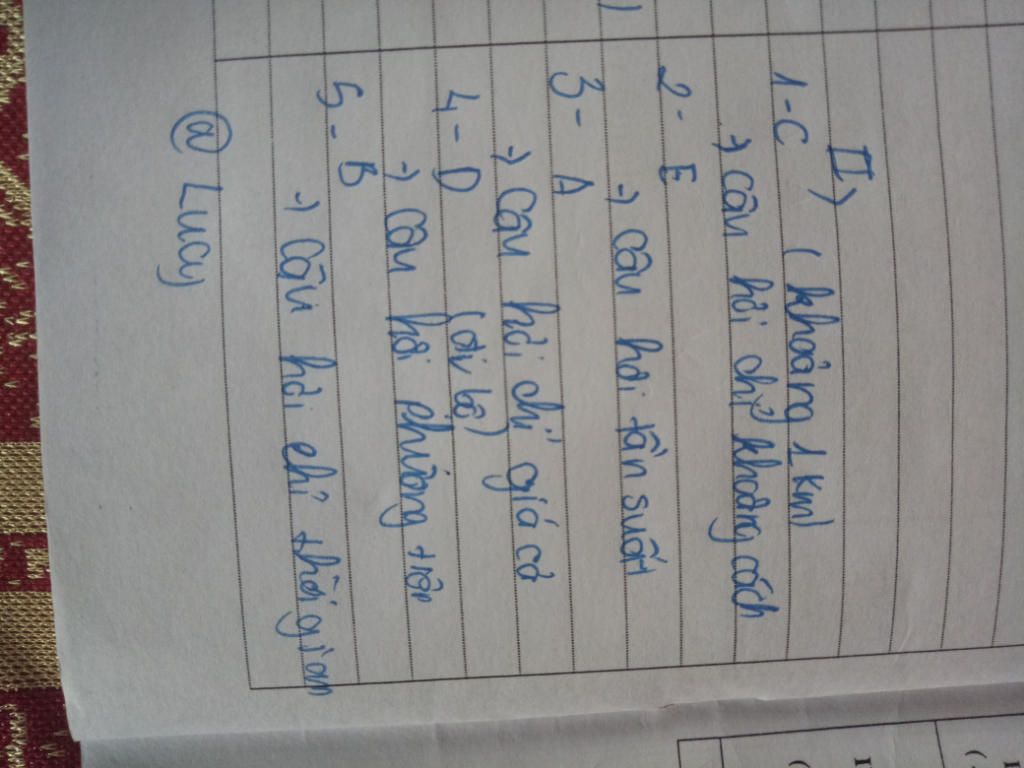 II>
1-C ( khoảng 1 km)
→ câu hỏi chỉ khoảng cách
2- E
→ câu hỏi tần suất
3- A
→ Câu hỏi chỉ giá cả
4- D (đi bộ)
→ Câu hỏi phương tiện
5- B
→ Câu hỏi chỉ thời gian
@ Lucy